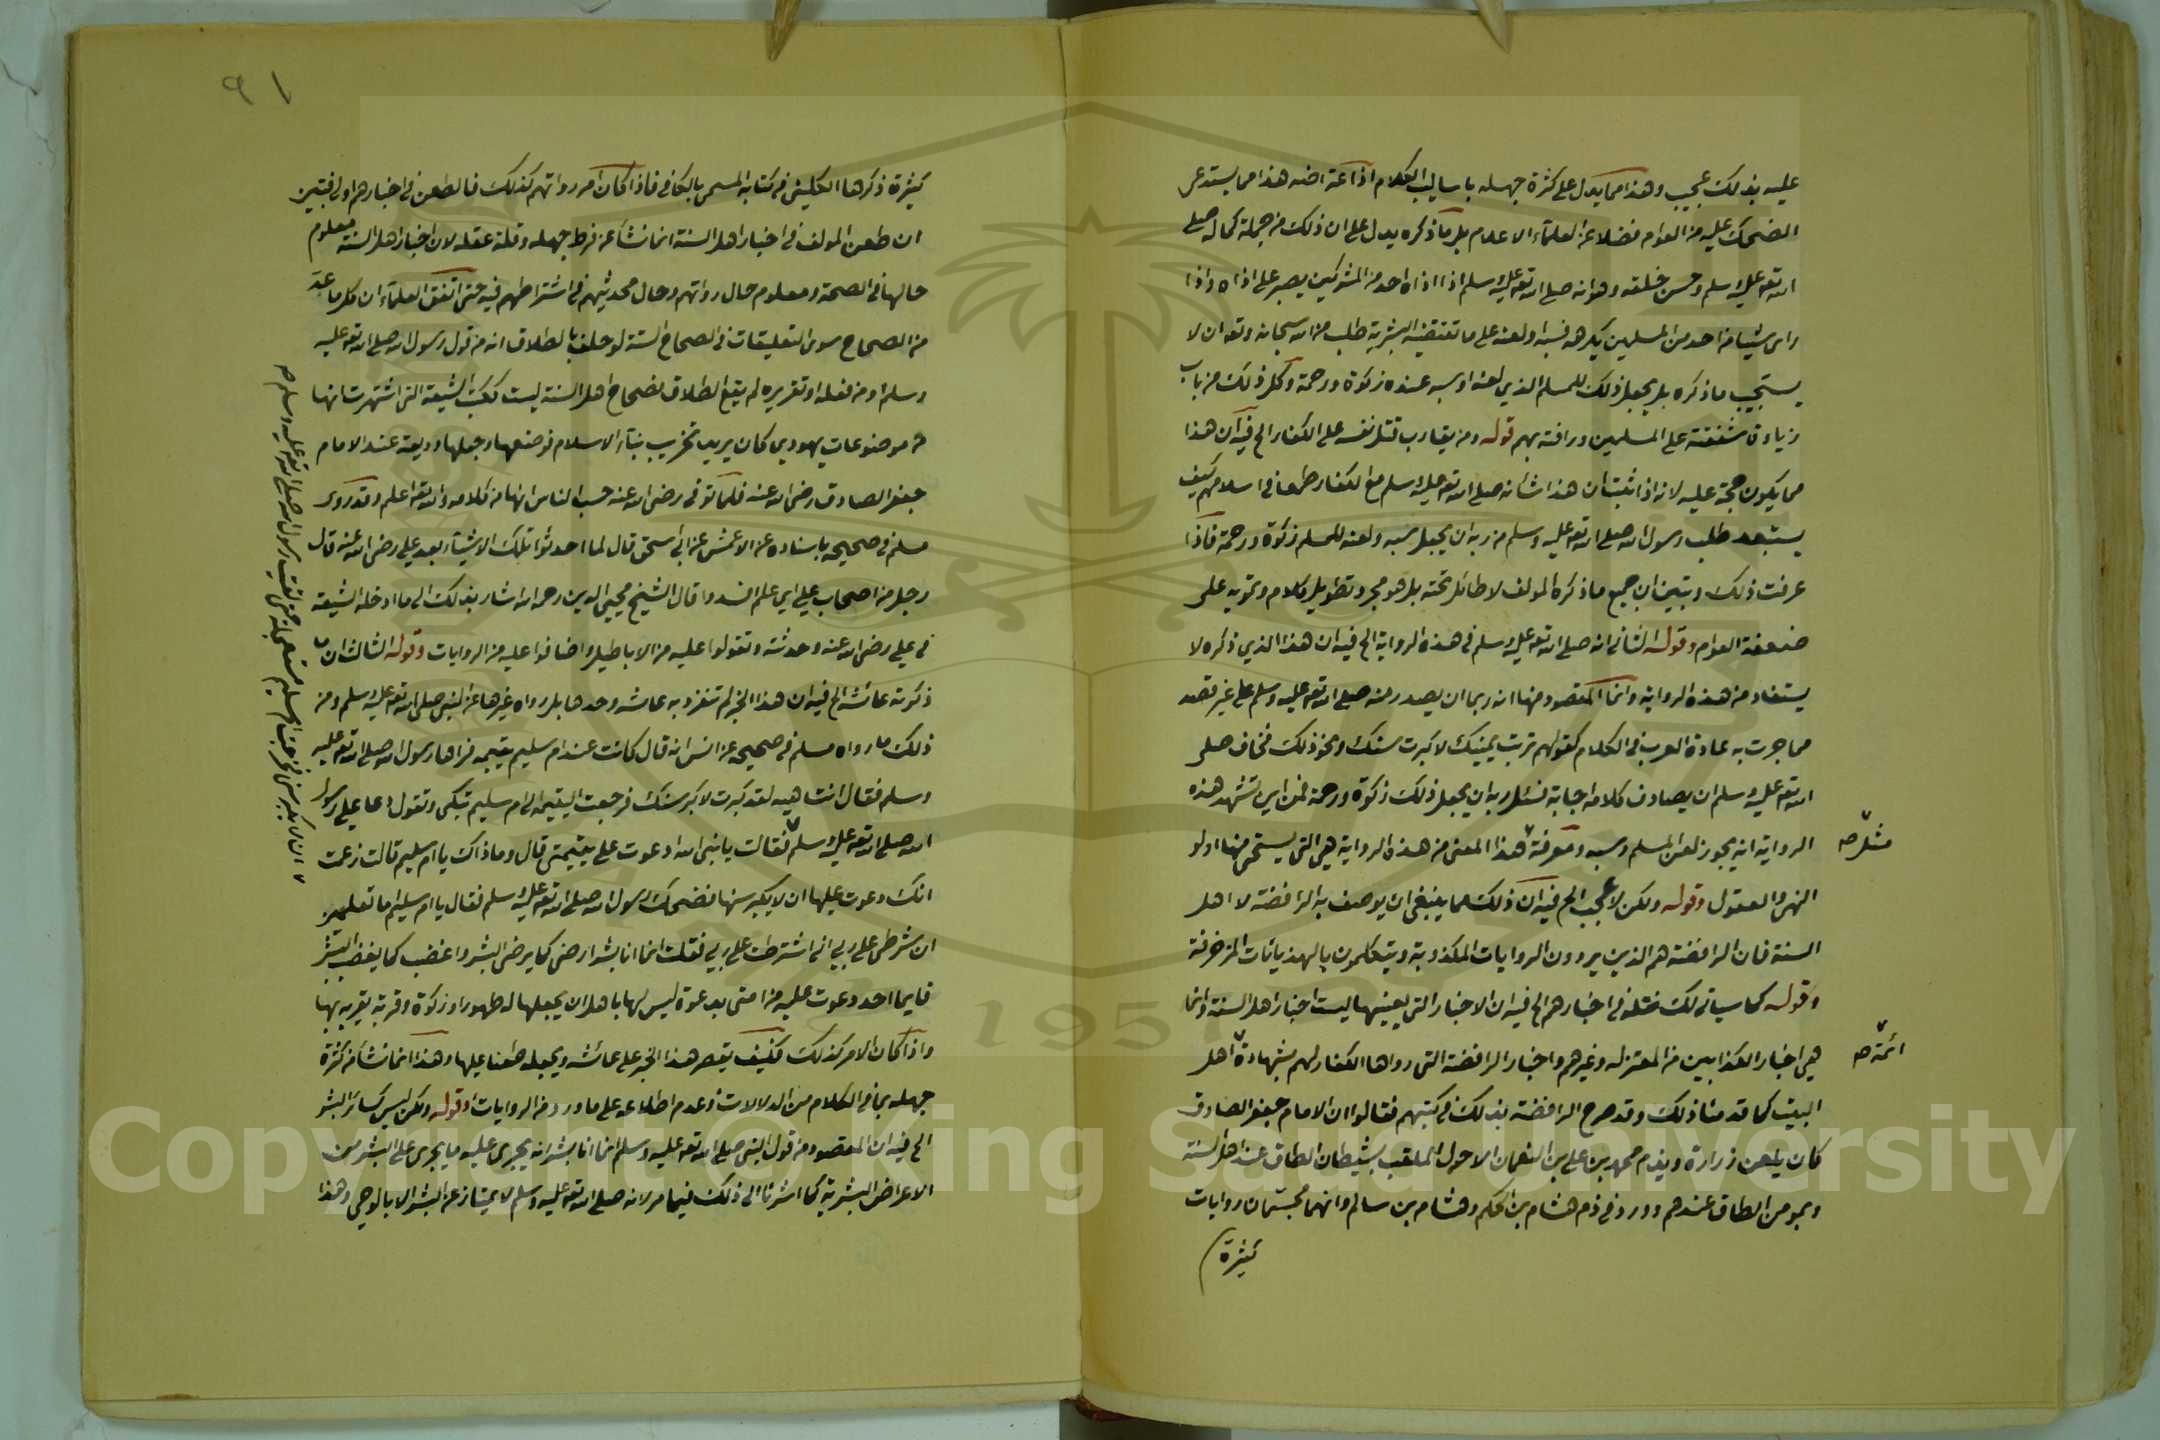 عليه بذلك عجيب وهذا مما يدل على كثرة جهله باساليب الكلام اذاعة اخه هذا مما يستدعى
الضحك عليه من العوام فضلا عن العلماء الاعلام بل ما ذكره يدل على ان ذلك من جملة كماله صلى
الله تعه عليه وسلم وحسن خلقه وهو انه صلى الله تعه عليه وسلم اذا اذاه احد من المشركين يصبر على اذاه واذا
راى شيئا من احد من المسلمين يكرهه فسبه او لعنه على ما تقتضيه البشرية طلب من الله سبحانه وتعه ان لا
يستجيب ما ذكره بل يجعل ذلك للمسلم الذي لعنه او سبه عنده زكوة ورحمة وكل ذلك من باب
زيادة شفقته على المسلمين ورافته بهم قوله ومن يقارب قتل نفسه على الكفار الخ فيه ان هذا
مما يكون حجة عليه لانه اذا ثبت ان هذا شانه صلى الله تعه عليه وسلم مع الكفار طمعا في اسلامهم كيف
يستبعد طلب رسول الله صلى الله تعه عليه وسلم من ربه ان يجعل سبه ولعنه للمسلم زكوة ورحمة فاذا
عرفت ذلك وتبين ان جميع ما ذكره المولف لا طائل تحته بل هو مجرد تطويل كلام وتمويه على
ضعفة العوام وقوله الثاني انه صلى الله تعه عليه وسلم في هذه الرواية الخ فيه ان هذا الذي ذكره لا
يستفاد من هذه الرواية وانما المقصود منها انه ربما ان يصدر منه صلى الله تعه عليه وسلم على غير قصد
مما جرت به عادة العرب في الكلام كقولهم تربت يمينك لا كبرت سنك ونحو ذلك فخاف صلى
الله تعه عليه وسلم ان يصادف كلامه اجابة فسئل ربه ان يجعل ذلك زكوة ورحمة فمن اين تشهد هذه
الرواية انه يجوز لعن المسلم وسبه ومعرفة هذا المعنى من هذه الرواية هي التي يستحى منها اولو
مثل صح
النهى والعقول وقوله ولكن لا عجب الخ فيه ان ذلك مما ينبغى ان يوصف به الرافضة لا اهل
السنة فان الرافضة هم الذين يروون الروايات المكذوبة ويتكلمون بالهذيانات المزخرفة
وقوله كما سياتى لك نقله في اخبارهم الخ فيه ان الاخبار التي يعنيها ليست اخبار اهل السنة وانما
هي اخبار الكذابين من المعتزلة وغيرهم واخبار الرافضة التى رواها الكفار لهم بشهادة اهل
ائمة صح
البيت كما قدمنا ذلك وقد صرح الرافضة بذلك في كتبهم فقالوا ان الامام جعفر الصادق
كان يلعن زرارة ويذم محمد بن على بن النعمان الاحول الملقب بشيطان الطاق عند اهل السنة
وبمومن الطاق عندهم وورد في ذم هشام بن الحكم وهشام بن سالم وانهما مجسمان روايات
كثيرة
٩١
كثيرة ذكرها الكليني في كتابه المسمى بالكافى فاذا كان امر رواتهم كذلك فالطعن في اخبارهم اولى فتبين
ان طعن المولف في اخبار اهل السنة انما نشا عن فرط جهله وقلة عقله لان اخبار اهل السنة معلوم
حالها في الصحة ومعلوم حال رواتهم وحال محدثيهم في اشتراطهم فيه حتى اتفق العلماء ان كل ما عدّ
من الصحاح سوى التعليقات في الصحاح الستة لو حلف بالطلاق انه من قول رسول الله صلى الله تعه عليه
وسلم او من فعله او تقريره لم يقع الطلاق فصحاح اهل السنة ليست ككتب الشيعة التى اشتهرت انها
من موضوعات يهودي كان يريد تخريب بناء الاسلام فوضعها وجعلها وديعة عند الامام
جعفر الصادق رضى الله عنه فلما توفى رضى الله عنه حسب الناس انها من كلامه والله تعه اعلم وقد روى
مسلم في صحيحه باسناده عن الاعمش عن ابى اسحق قال لما احدثوا تلك الاشياء بعد علي رضى الله عنه قال
رجل من اصحاب علي اي علم افسدوا قال الشيخ محيى الدين رحمه الله اشار بذلك الى ما ادخله الشيعة
في علي رضى الله عنه وحدثته وتقولوا عليه من الاباطيل واضافوا عليه من الروايات وقوله الثالث ان ما
ذكرته عائشة الخ فيه ان هذا الخبر لم تنفرد به عائشة وحدها بل رواه غيرها عن النبى صلى الله تعه عليه وسلم ومن
ذلك ما رواه مسلم في صحيحه عن انس انه قال كانت عند ام سليم يتيمة فراها رسول الله صلى الله تعه عليه
وسلم فقال انت هيه لقد كبرت لا كبر سنك فرجعت اليتيمة الى ام سليم تبكى وتقول دعا علي رسول
الله صلى الله تعه عليه وسلم فقالت يا نبى الله ادعوت على يتيمتى قال وما ذاك يا ام سليم قالت زعمت
انك دعوت عليها ان لا يكبر سنها فضحك رسول الله صلى الله تعه عليه وسلم فقال يا ام سليم اما تعلمين
ان شرطى على ربي انى اشترطت على ربي فقلت انما انا بشر ارضى كما يرضى البشر واغضب كما يغضب البشر
فايما احد دعوت عليه من امتى بدعوة ليس لها باهل ان يجعلها له طهورا وزكوة وقربة يقربه بها
واذا كان الامر كذلك فكيف يقصر هذا الخبر على عائشة ويجعله طعنا عليها وهذا انما نشا من كثرة
جهله بما في الكلام من الدلالات وعدم اطلاعه على ما ورد من الروايات وقوله ولكن ليس كسائر البشر
الخ فيه ان المقصود من قول النبى صلى الله تعه عليه وسلم انما انا بشر انه يجرى عليه ما يجرى على البشر من
الاعراض البشرية كما اشرنا الى ذلك فيما مر لانه صلى الله تعه عليه وسلم لا يمتاز عن البشر الا بالوحى وهذا
ان لا يكبر سنى فخرجت ام سليم مستعجلة حتى لقيت رسول الله صلى الله تعه عليه وسلم صح
Copyright © King Saud University
1957